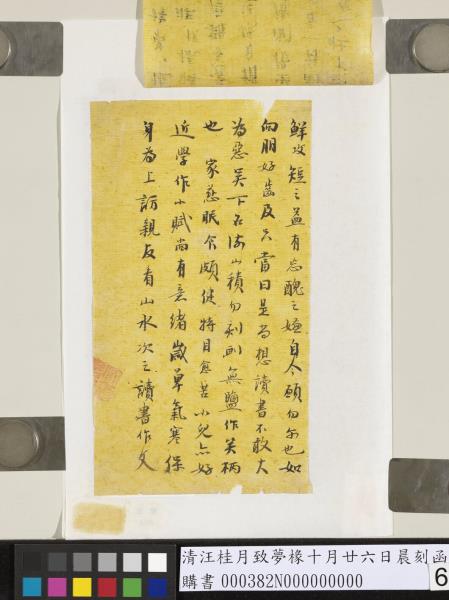 鮮攻短之益有忘醜之嫌自今願勿尔也如
向朋好齒及只當日是尚想讀書不敢大
為惡吴下名流山積勿刻劃無鹽作笑柄
也 家慈眠食頗健特目愈苦小兒亦好
近學作小賦尚有意緒歲單氣寒保
身為上訪親友看山水次之讀書作文
清汪桂月致夢椽十月廿六日晨刻函
購書 000382N000000000
6